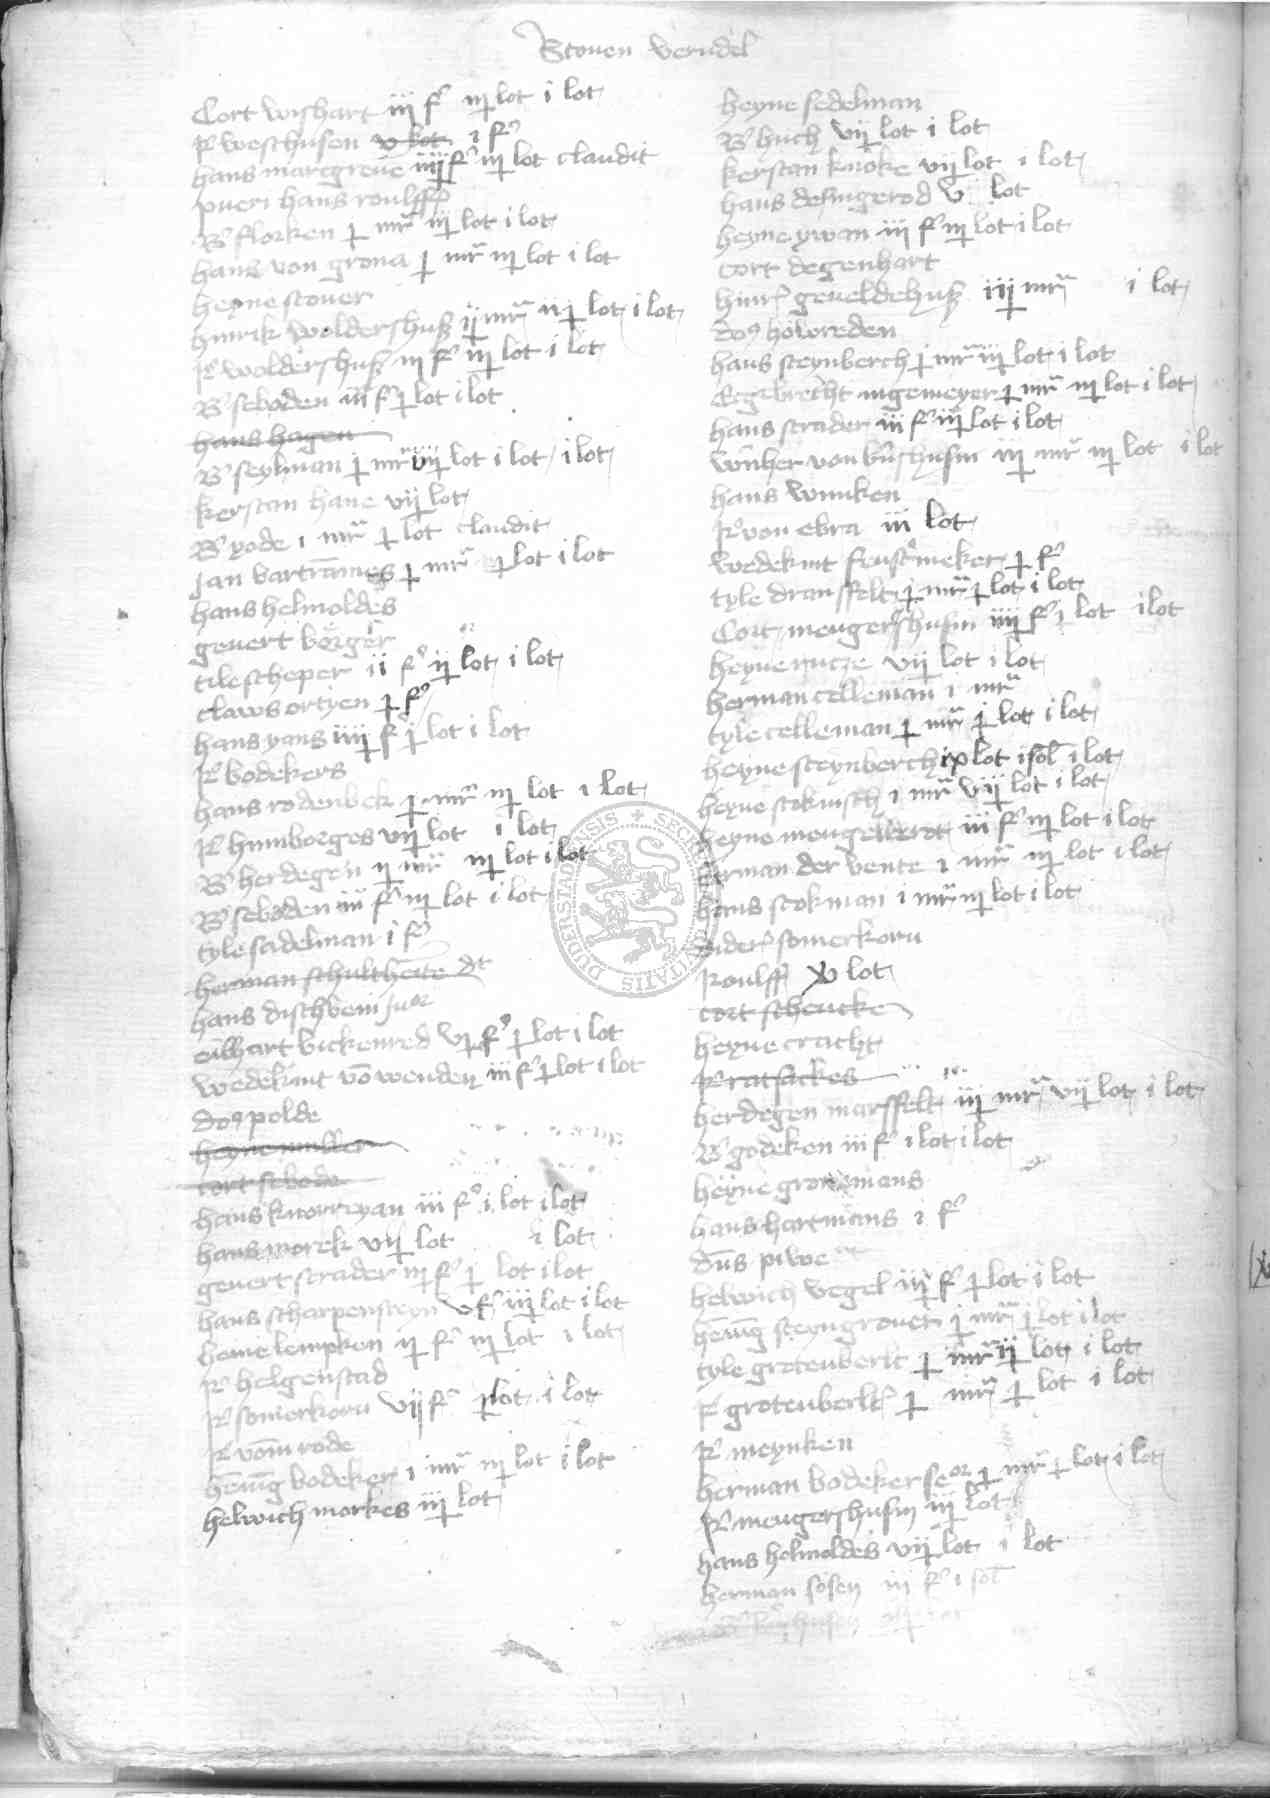 Stouen verndel
Cort wishart iij f iij lot i lot
R westhusen v lot i f
hans marcgreue iiij f iij lot claudit
pueri hans roulffs
B florken j mr iij lot i lot
hans von grona j mr iij lot i lot
heyne stouer
hinrik woldershusz ij mr ij lot i lot
R woldershusz iij f iij lot i lot
B seboden iij f j lot i lot
hans hagen
B seylman j mr vij lot i lot i lot
kerstan hane vij lot
B yode i mr j lot claudit
Jan bartrames j mr j lot i lot
hans helmoldes
geuert borger
tile scheper ij f ij lot i lot
claws ortyen j f
hans yans iiij f j lot i lot
R bodekers
hans rodenbek j mr iij lot i lot
R humborges vij lot i lot
B herdegen ij mr iij lot i lot
B seboden iij f iij lot i lot
tyle sadelman i f
herman schultheite dt
hans dischbein Juor
eilhart bickenred vj f j lot i lot
wedekint vo wenden iij f j lot i lot
dos polde
heyne muller
cort sebode
hans knorryan iij f i lot i lot
hans morek vij lot i lot
geuert scrader iij f j lot i lot
hans scharpensteyn v f iij lot i lot
heine lempken ij f iij lot i lot
R helgenstad
R somerkorn vij f j lot i lot
R vom rode
henig bodeker i mr iij lot i lot
helwich morkes iij lot
heyne sedelman
B huch vij lot i lot
kerstan knoke vij lot i lot
hans desingerod v lot
heyne ywan iij f iij lot i lot
cort degenhart
hinr geueldehusz iij mr i lot
dos howreden
hans steynberch j mr iij lot i lot
Egebrecht ingemeyer j mr iij lot i lot
hans scrader iij f iij lot i lot
wnher von busthusen iij mr iij lot i lot
hans wunken
R von ebra iij lot
wedekint fenstmeker j f
tyle dransfelt j mr j lot i lot
Cort mengershusen iiij f j lot i lot
heyne nucze vij lot i lot
herman celleman i mr
tyle celleman j mr j lot i lot
heyne steynberch ix lot i sol i lot
heyne stokvisch i mr vij lot i lot
heyne mengelrot iij f iij lot i lot
herman der bente i mr iij lot i lot
hans stokman i mr iij lot i lot
dider somerkorn
Roulff xv lot
cort schencke
heyne cracht
R ratsackes
herdegen marsfelt iij mr vij lot i lot
B godeken iij f i lot i lot
heyne gronemans
hans hartmans i f
dns piwe
helwich vegel iij f j lot i lot
henig steyngrouer j mr j lot i lot
tyle grotenberlt j mr ij lot i lot
F grotenberlt j mr j lot i lot
R meynken
herman bodeker seor j mr j lot i lot
R mengershusen iij lot
hans helmoldes vij lot i lot
herman sosen iij f i sol
SECRETVM DUDERSTADENSIS CIVITATIS